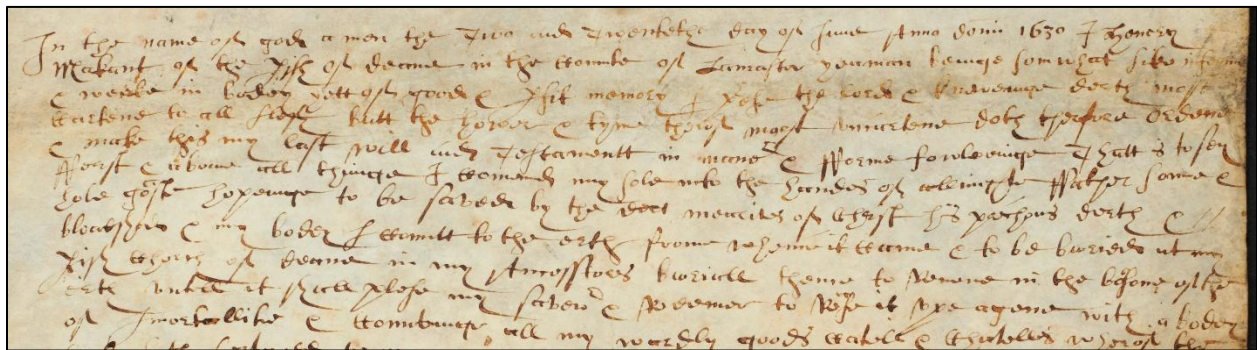 In the name of god amen the Two and Twenteth day of June Anno domi 1630 I Henery
Makant of the pish of deane in the Countie of Lancaster yeaman beinge somwhat sike
& weeke in bodey yett of good & pfit memory I prese the lord & knoweinge deeth most
sartene to all flesh butt the hower & tyme therof most unsartene doth therfore ordene
& make this my last will and Testamentt in maner & fforme foweleinge That is to sey
ffirst & above all thinge I comend my sole unto the handes of allmightie ffather sonne &
hole goste hopeinge to be saved by the mearites of Christ his prechus deeth &
bloodshed & my bodey I comitt to the erth frome whence it came & to be buried at my
pish church of deane in my Ancosstores buriall theme to remene in the bosome of the
erth untill it shall plese my savear & redemer to rese it upe agene with a bodey
of Imortallitie & all my wordly goods catell & chatelles wherof the